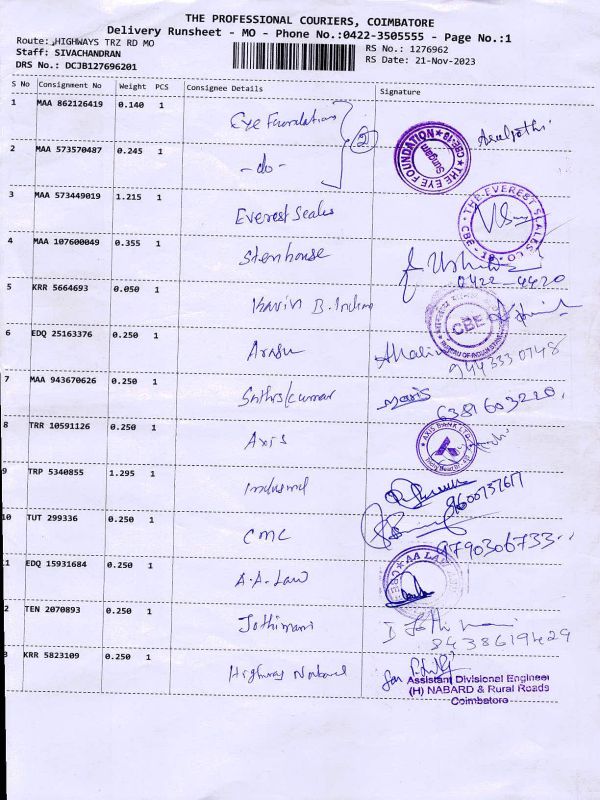 THE PROFESSIONAL COURIERS, COIMBATORE
Delivery Runsheet - MO - Phone No.:0422-3505555 - Page No.:1
Route: HIGHWAYS TRZ RD MO
RS No.: 1276962
Staff: SIVACHANDRAN
RS Date: 21-Nov-2023
DRS No.: DCJB127696201
S No Consignment No Weight PCS Consignee Details Signature
1 MAA 862126419 0.140 1 Eye Foundation
2
2 MAA 573570487 0.245 1 -do-
THE EYE FOUNDATION CBE-18
3 MAA 573449019 1.215 1 Everest Seales
THE EVEREST SEALES CO. CBE
4 MAA 107600049 0.355 1 Stenhouse
0422-4420
5 KRR 5664693 0.050 1 Kavin B. Indian
CBE
BUREAU OF INDIAN STANDARDS
6 EDQ 25163376 0.250 1 Arasu
9443330748
7 MAA 943670626 0.250 1
6381603220.
8 TRR 10591126 0.250 1 Axis
AXIS BANK LTD.
9 TRP 5340855 1.295 1
9600737617
10 TUT 299336 0.250 1 CMC
9790306733
11 EDQ 15931684 0.250 1 A.A. Law
AA LAW
2 TEN 2070893 0.250 1 Jothimani
8438619429
3 KRR 5823109 0.250 1 Highway Nabard
for
Assistant Divisional Engineer
(H) NABARD & Rural Roads
Coimbatore